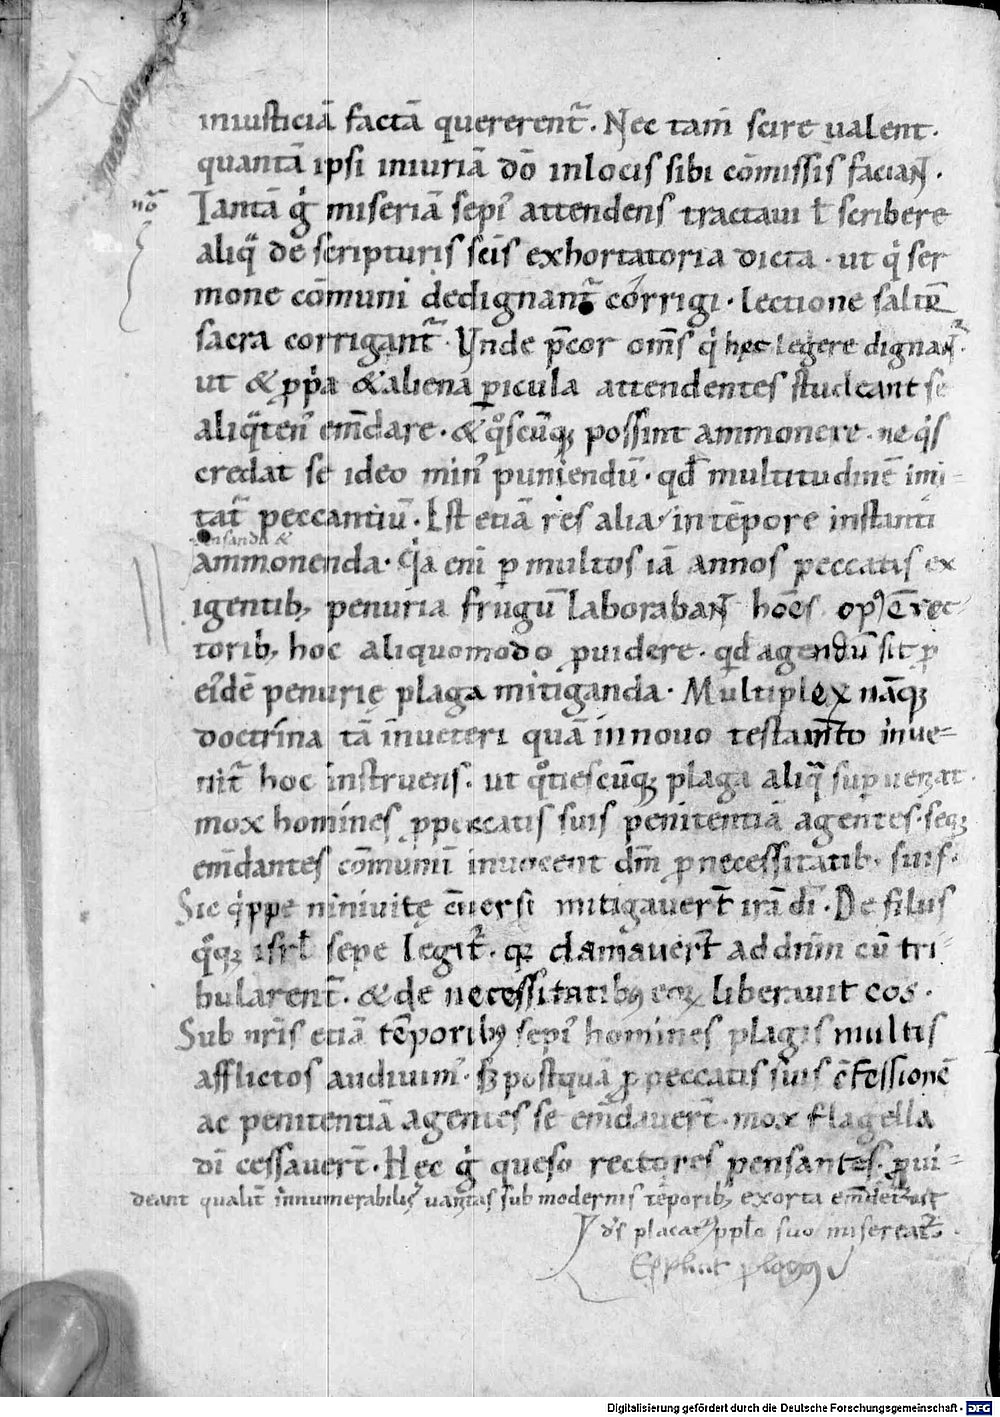 iniusticiā factā quererent᷑. Nec tam̄ scire ualent.
quantā ipsi iniuriā dō in locis sibi cōmissis faciaɴᴛ.
noᷓ
Tantā g̊ miseriā sepi᷒ attendens tractaui ł scribere
aliqᷓ de scripturis sc̄is exhortatoria dicta. ut qͥ ser
mone cōmuni dedignant᷑ corrigi. lectione saltē
sacra corrigant᷑. Vnde p̄cor om̄s qͥ hęc legere dignaɴᴛ᷑.
ut & ꝓpͥa & aliena ꝑicula attendentes studeant se
aliqͣten᷒ em̄dare. & qͦscūq; possint ammonere. ne qͥs
credat se ideo min᷒ puniendū. qđ multitudinē imi-
tat᷑ peccantiū. Est etiā res alia in tēpore instanti
pensanda &
ammonenda. Qͥa eni᷒ ꝑ multos iā annos peccatis ex
igentib; penuria frugū laborabaɴᴛ hōēs op᷒ ē rec-
torib; hoc aliquomodo ꝓuidere. qđ agendū sit ꝓ
ei᷒dē penurię plaga mitiganda. Multiplex nāq;
doctrina tā in ueteri quā in nouo testam̄to inue-
nit᷑ hoc instruens. ut qͦtiescūq; plaga aliqͣ suꝑuenat.
mox homines ꝓ peccatis suis penitentiā agentes. seq;
em̄dantes cōmunit᷑ inuocent dm̄ ꝓ necessitatib; suis.
Sic qͥppe niniuitę c̄uersi mitigauer̄t irā dī. De filiis
qͦq; isrł sepe legit᷑. qꝛ clamauer̄t ad dn̄m cū tri-
bularent᷑. & de necessitatibꝰ eoꝝ liberauit eos.
Sub nr̄is etiā tēporibꝰ sepi᷒ homines plagis multis
afflictos audiuim᷒. sꝫ postquā ꝓ peccatis suis c̄fessionē
ac penitentiā agentes se em̄dauer̄t. mox flagella
dī cessauer̄t. Hęc g̊ queso rectores pensantes. ꝓui-
deant qualit᷑ innumerabilis uanitas sub modernis tēporib; exorta em̄det᷑ ut
ds̄ placat᷒ ppło suo misereat᷑.
Explicit ꝓlogꝰ
Digitalisierung gefördert durch die Deutsche Forschungsgemeinschaft - DFG